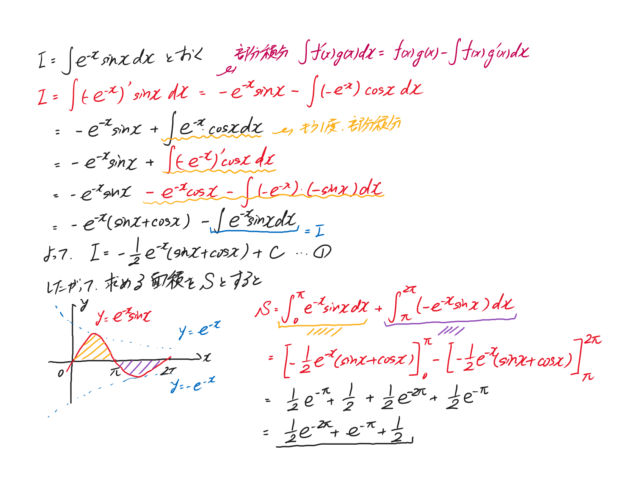 I = ∫e^{-x} sinx dx とおく 部分積分 ∫f'(x)g(x)dx = f(x)g(x) - ∫f(x)g'(x)dx
I = ∫(-e^{-x})' sinx dx = -e^{-x}sinx - ∫(-e^{-x}) cosx dx
= -e^{-x}sinx + ∫e^{-x}·cosx dx もう1度、部分積分
= -e^{-x}sinx + ∫(-e^{-x})'cosx dx
= -e^{-x}sinx - e^{-x}cosx - ∫(-e^{-x})·(-sinx)dx
= -e^{-x}(sinx+cosx) - ∫e^{-x}sinx dx = I
よって、 I = -1/2 e^{-x}(sinx+cosx) + C … ①
したがって、求める面積をSとすると
y
y=e^{-x}sinx
y=e^{-x}
0 π 2π x
y=-e^{-x}
S = ∫_0^π e^{-x}sinx dx + ∫_π^{2π} (-e^{-x}sinx) dx
= [-1/2 e^{-x}(sinx+cosx)]_0^π - [-1/2 e^{-x}(sinx+cosx)]_π^{2π}
= 1/2 e^{-π} + 1/2 + 1/2 e^{-2π} + 1/2 e^{-π}
= 1/2 e^{-2π} + e^{-π} + 1/2